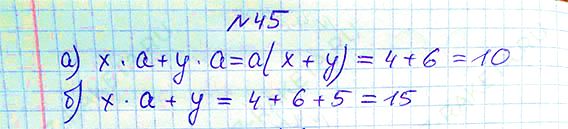 №45
а) x · a + y · a = a(x + y) = 4 + 6 = 10
б) x · a + y = 4 + 6 + 5 = 15